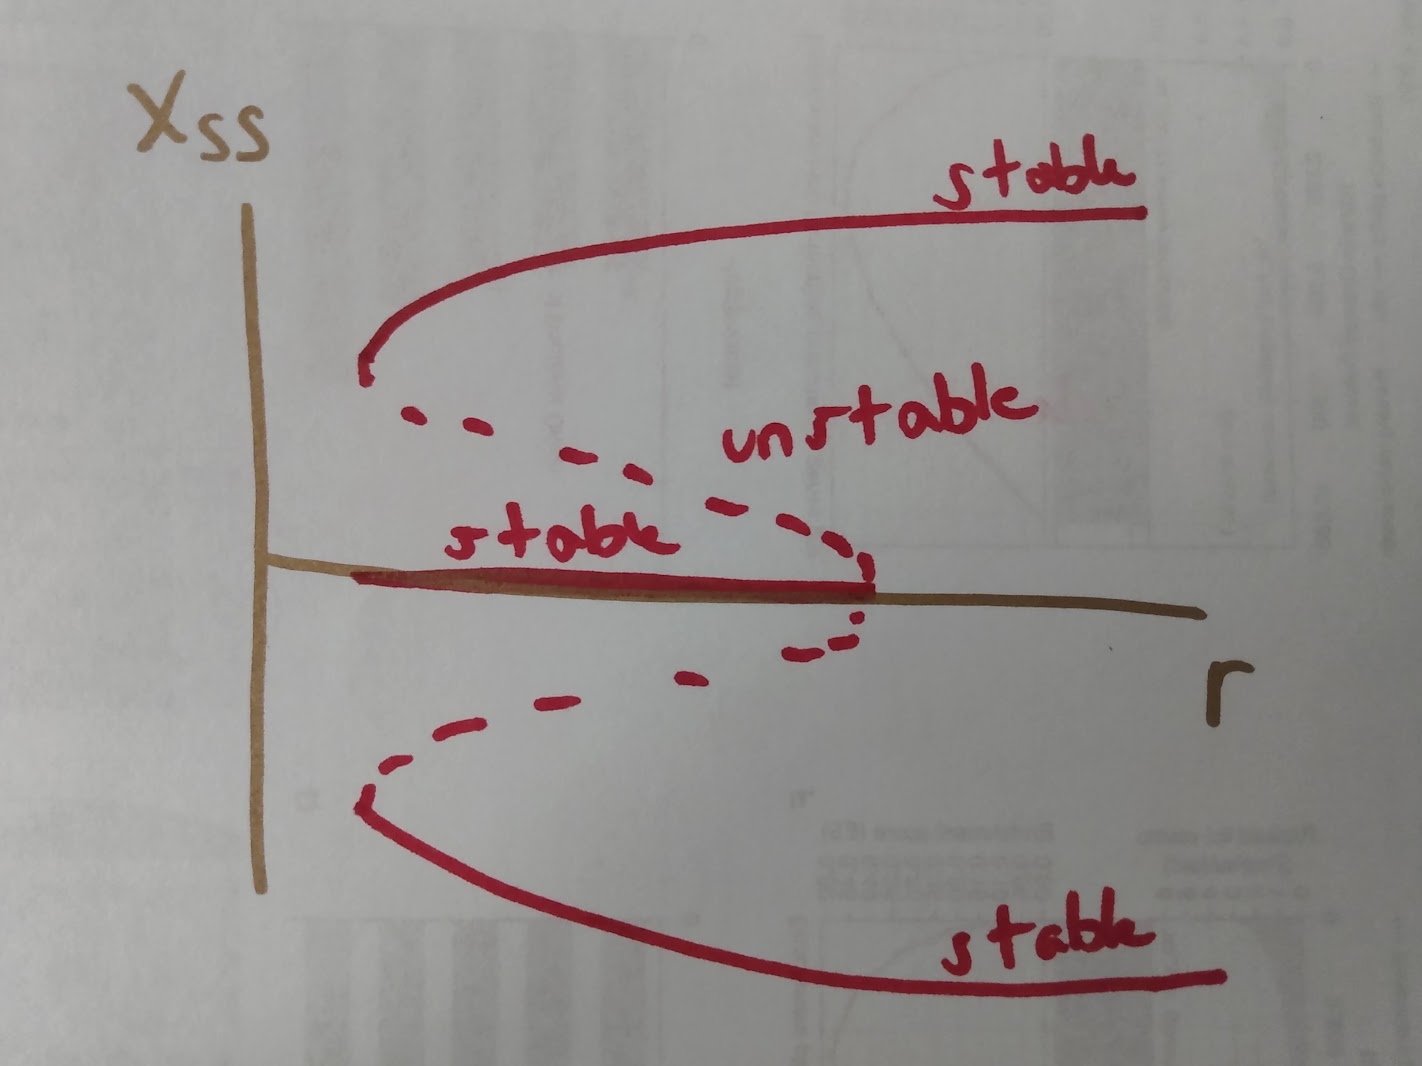 Xss
stable
unstable
stable
r
stable